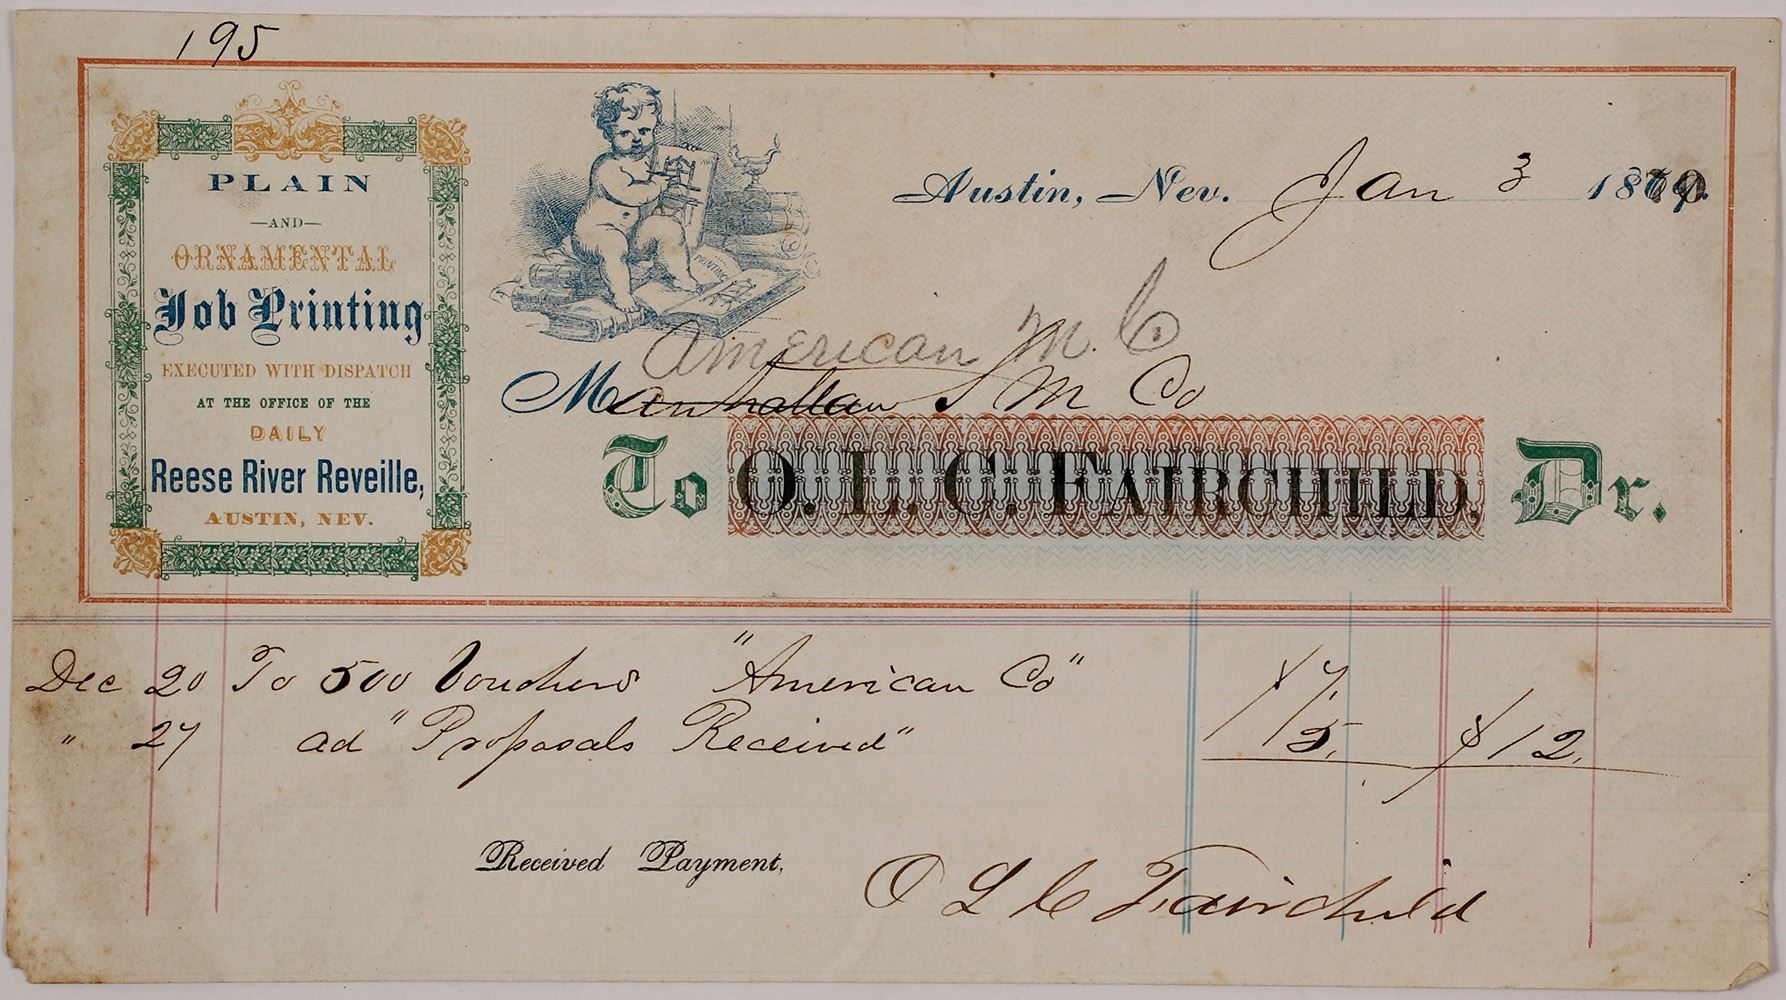 195
PLAIN
—AND—
ORNAMENTAL
Job Printing
EXECUTED WITH DISPATCH
AT THE OFFICE OF THE
DAILY
Reese River Reveille,
AUSTIN, NEV.
PRINTING
Austin, Nev. Jan 3 1870
American M. Co
Manhattan S M Co
To O. L. C. FAIRCHILD, Dr.
Dec 20 To 500 Vouchers "American Co" $7.
" 27 ad "Proposals Received" 5. $12.
Received Payment,
O L C Fairchild